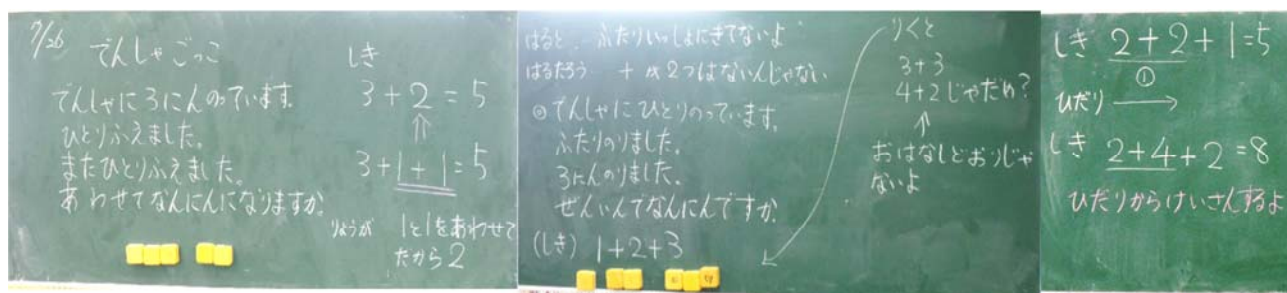 9/26
でんしゃごっこ
でんしゃに3にんのっています。
ひとりふえました。
またひとりふえました。
あわせてなんにんになりますか。
しき
3+2=5
⇑
3+1+1=5
りょうが 1と1をあわせて
だから2
はると、ふたりいっしょにきてないよ
はるたろう +が2つはないんじゃない
◎でんしゃにひとりのっています。
ふたりのりました。
3にんのりました。
ぜんいんでなんにんですか。
(しき) 1+2+3
りくと
3+3
4+2じゃだめ?
↑
おはなしどおりじゃ
ないよ
しき 2+2+1=5
①
ひだり→
しき 2+4+2=8
ひだりからけいさんするよ